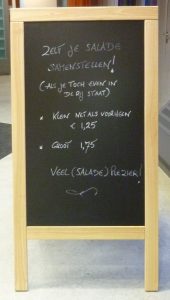 ZELF JE SALADE
SAMENSTELLEN!
(-ALS JE TOCH EVEN IN
DE RIJ STAAT)
* KLEIN NET ALS VOORHEEN
€ 1,25
* GROOT 1,75
VEEL (SALADE) PLEZIER!